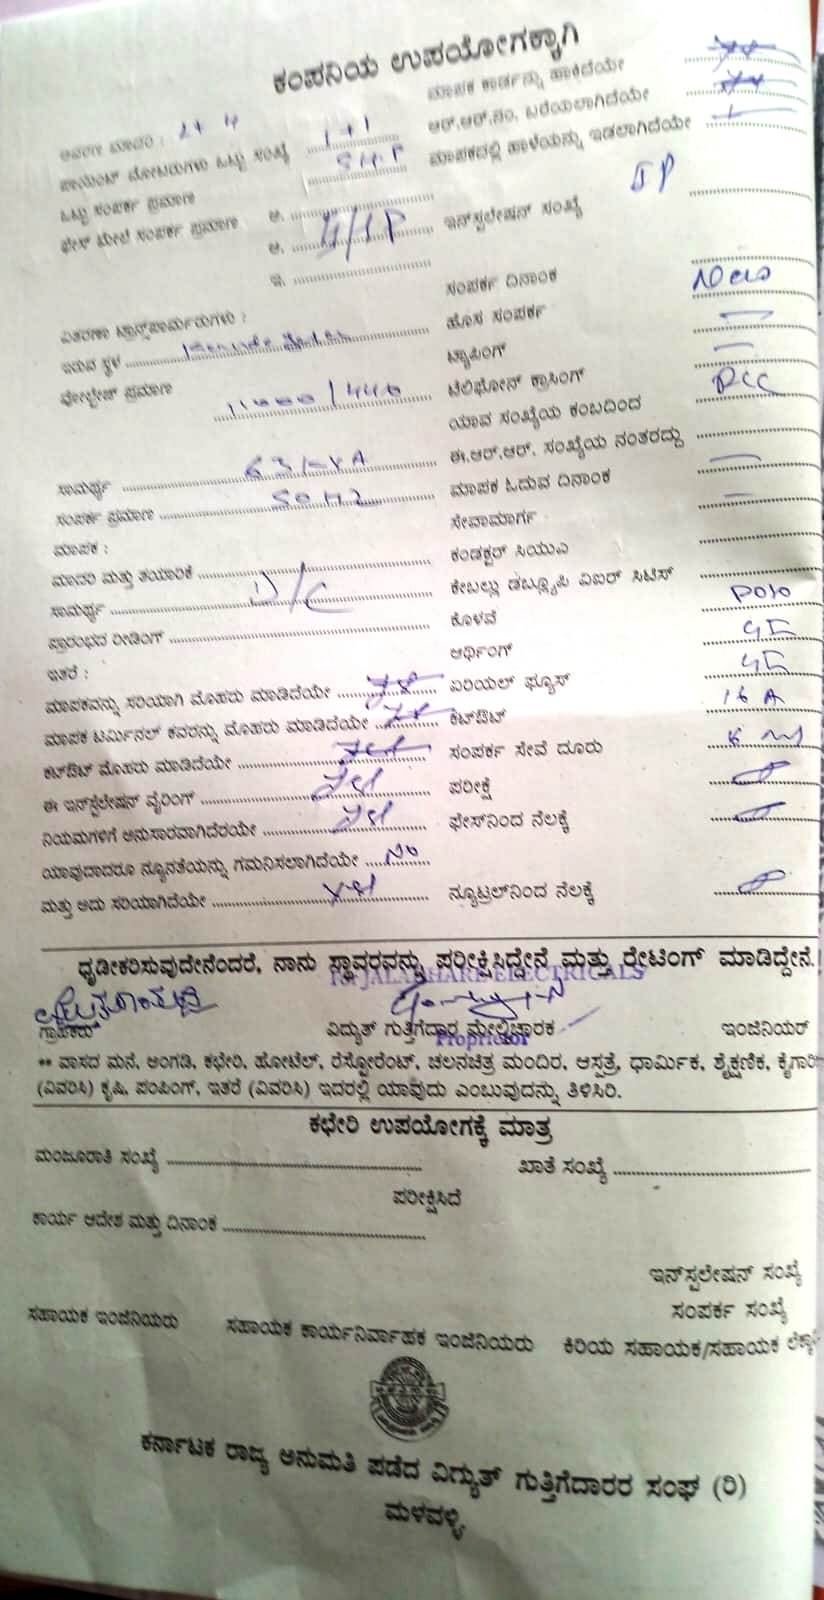 ಕಂಪನಿಯ ಉಪಯೋಗಕ್ಕಾಗಿ
ಮಾಪಕ ಕಾರ್ಡನ್ನು ಹಾಕಿದೆಯೇ
ಆರ್.ಆರ್.ನಂ. ಬರೆಯಲಾಗಿದೆಯೇ
ಮಾಪಕದಲ್ಲಿ ಹಾಳೆಯನ್ನು ಇಡಲಾಗಿದೆಯೇ
ಪಾಯಿಂಟ್ ಮೋಟರುಗಳು ಒಟ್ಟು ಸಂಖ್ಯೆ 1+1
ಒಟ್ಟು ಸಂಪರ್ಕ ಪ್ರಮಾಣ 5 H.P
ಫೇಸ್ ಮೇಲೆ ಸಂಪರ್ಕ ಪ್ರಮಾಣ ಅ.
ಆ.
ಇ.
ಇನ್‌ಸ್ಟಲೇಷನ್ ಸಂಖ್ಯೆ IP
ಸಂಪರ್ಕ ದಿನಾಂಕ
ವಿತರಣಾ ಟ್ರಾನ್ಸ್‌ಫಾರ್ಮರುಗಳು : ಹೊಸ ಸಂಪರ್ಕ
ಇರುವ ಸ್ಥಳ ಟ್ಯಾಪಿಂಗ್
ವೋಲ್ಟೇಜ್ ಪ್ರಮಾಣ 11000/440 ಟೆಲಿಫೋನ್ ಕ್ರಾಸಿಂಗ್
ಯಾವ ಸಂಖ್ಯೆಯ ಕಂಬದಿಂದ
ಸಾಮರ್ಥ್ಯ ಈ.ಆರ್.ಆರ್. ಸಂಖ್ಯೆಯ ನಂತರದ್ದು
ಸಂಪರ್ಕ ಪ್ರಮಾಣ 50 HZ ಮಾಪಕ ಓದುವ ದಿನಾಂಕ
ಮಾಪಕ : ಸೇವಾಮಾರ್ಗ
ಮಾದರಿ ಮತ್ತು ತಯಾರಿಕೆ ಕಂಡಕ್ಟರ್ ಸಿಯುವಿ
ಸಾಮರ್ಥ್ಯ D/C ಕೇಬಲ್ಲು ಡಬ್ಲ್ಯೂಪಿ ವಿಐರ್ ಸಿಟಿಸ್
ಪ್ರಾರಂಭದ ರೀಡಿಂಗ್ ಕೊಳವೆ
ಇತರೆ : ಆರ್ಥಿಂಗ್
ಮಾಪಕವನ್ನು ಸರಿಯಾಗಿ ಮೊಹರು ಮಾಡಿದೆಯೇ ಏರಿಯಲ್ ಫ್ಯೂಸ್
ಮಾಪಕ ಟರ್ಮಿನಲ್ ಕವರನ್ನು ಮೊಹರು ಮಾಡಿದೆಯೇ ಕಟ್‌ಔಟ್ 16 A
ಕಟ್‌ಔಟ್ ಮೊಹರು ಮಾಡಿದೆಯೇ Yes ಸಂಪರ್ಕ ಸೇವೆ ದೂರು
ಈ ಇನ್‌ಸ್ಟಲೇಷನ್ ವೈರಿಂಗ್ Yes ಪರೀಕ್ಷೆ
ನಿಯಮಗಳಿಗೆ ಅನುಸಾರವಾಗಿದೆರೆಯೇ Yes ಫೇಸ್‌ನಿಂದ ನೆಲಕ್ಕೆ
ಯಾವುದಾದರೂ ನ್ಯೂನತೆಯನ್ನು ಗಮನಿಸಲಾಗಿದೆಯೇ No
ಮತ್ತು ಅದು ಸರಿಯಾಗಿದೆಯೇ Yes ನ್ಯೂಟ್ರಲ್‌ನಿಂದ ನೆಲಕ್ಕೆ
ಧೃಡೀಕರಿಸುವುದೇನೆಂದರೆ, ನಾನು ಸ್ಥಾವರವನ್ನು ಪರೀಕ್ಷಿಸಿದ್ದೇನೆ ಮತ್ತು ರೇಟಿಂಗ್ ಮಾಡಿದ್ದೇನೆ.
JALADHARE ELECTRICALS
ಗ್ರಾಹಕರು ವಿದ್ಯುತ್ ಗುತ್ತಿಗೆದಾರ ಮೇಲ್ವಿಚಾರಕ ಇಂಜಿನಿಯರ್
Proprietor
** ವಾಸದ ಮನೆ, ಅಂಗಡಿ, ಕಛೇರಿ, ಹೋಟೆಲ್, ರೆಸ್ಟೋರೆಂಟ್, ಚಲನಚಿತ್ರ ಮಂದಿರ, ಆಸ್ಪತ್ರೆ, ಧಾರ್ಮಿಕ, ಶೈಕ್ಷಣಿಕ, ಕೈಗಾರಿ
(ವಿವರಿಸಿ) ಕೃಷಿ, ಪಂಪಿಂಗ್, ಇತರೆ (ವಿವರಿಸಿ) ಇದರಲ್ಲಿ ಯಾವುದು ಎಂಬುವುದನ್ನು ತಿಳಿಸಿರಿ.
ಕಛೇರಿ ಉಪಯೋಗಕ್ಕೆ ಮಾತ್ರ
ಮಂಜೂರಾತಿ ಸಂಖ್ಯೆ ಖಾತೆ ಸಂಖ್ಯೆ
ಪರೀಕ್ಷಿಸಿದೆ
ಕಾರ್ಯ ಆದೇಶ ಮತ್ತು ದಿನಾಂಕ
ಇನ್‌ಸ್ಟಲೇಷನ್ ಸಂಖ್ಯೆ
ಸಂಪರ್ಕ ಸಂಖ್ಯೆ
ಸಹಾಯಕ ಇಂಜಿನಿಯರು ಸಹಾಯಕ ಕಾರ್ಯನಿರ್ವಾಹಕ ಇಂಜಿನಿಯರು ಕಿರಿಯ ಸಹಾಯಕ/ಸಹಾಯಕ
ಕರ್ನಾಟಕ ರಾಜ್ಯ ಅನುಮತಿ ಪಡೆದ ವಿದ್ಯುತ್ ಗುತ್ತಿಗೆದಾರರ ಸಂಘ (ರಿ)
ಮಳವಳ್ಳಿ